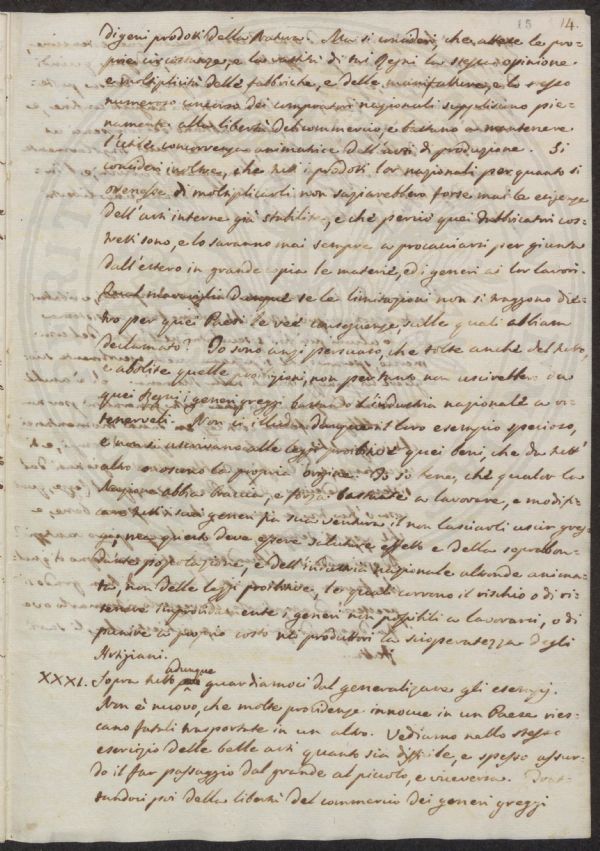 14.
di geni prodotti della Natura. Ma si consideri, che attese le pro-
prie circostanze, e la vastità di tai Regni la stessa opinione
e moltiplicità delle fabbriche, e delle manifatture, e lo stesso
numeroso concorso dei compratori nazionali suppliscono pie-
namente alla libertà del commercio, e bastano a mantenere
l'utile concorrenza animatrice dell'arti di produzione. Si
consideri inoltre, che tutti i prodotti lor nazionali per quanto si
di moltiplicarli non sazierebbero forse mai le esigenze
dell'arti interne già stabilite, e che perciò quei fabbricatori cos-
tretti sono, e lo saranno mai sempre a procacciarsi per giunta
dall'estero in grande copia le materie, ed i generi ai lor lavori.
meraviglia dunque se le limitazioni non si traggono die-
tro per quei Paesi le ree conseguenze, sulle quali abbiam
declamato? Io sono anzi persuaso, che tolte anche del tutto,
e abolite quelle proibizioni, non pertanto non uscirebbero da
quei Regni i generi greggi bastando l'industria nazionale a ri-
tenerveli. Non ci illuda dunque il loro esempio specioso,
e non si ascrivano alle leggi proibitive quei beni, che da tutt'
altro la propria origine. Io so bene, che qualor la
Nazione abbia braccia, e forze bastanti a lavorare, e modifi-
care tutti i suoi generi fia sua ventura il non lasciarli uscir greg-
gi, ma questo deve essere salutare effetto e della soprabbon-
dante popolazione, e dell'industria nazionale altronde anima-
ta, non delle leggi proibitive, per quali corrono il rischio o di ri-
tenere improvvidamente i generi non possibili a lavorarsi, o di
punire a proprio costo nei produttori la scioperatezza degli
Artigiani.
XXXI. Sopra tutto adunque guardiamoci dal generalizzare gli esempj.
Non è nuovo, che molte providenze innocue in un Paese ries-
cano fatali trasportate in un altro. Vediamo nello stesso
esercizio delle belle arti quanto sia difficile, e spesso assur-
do il far passaggio dal grande al piccolo, e viceversa. Trat-
tandosi poi della libertà del commercio dei generi greggi